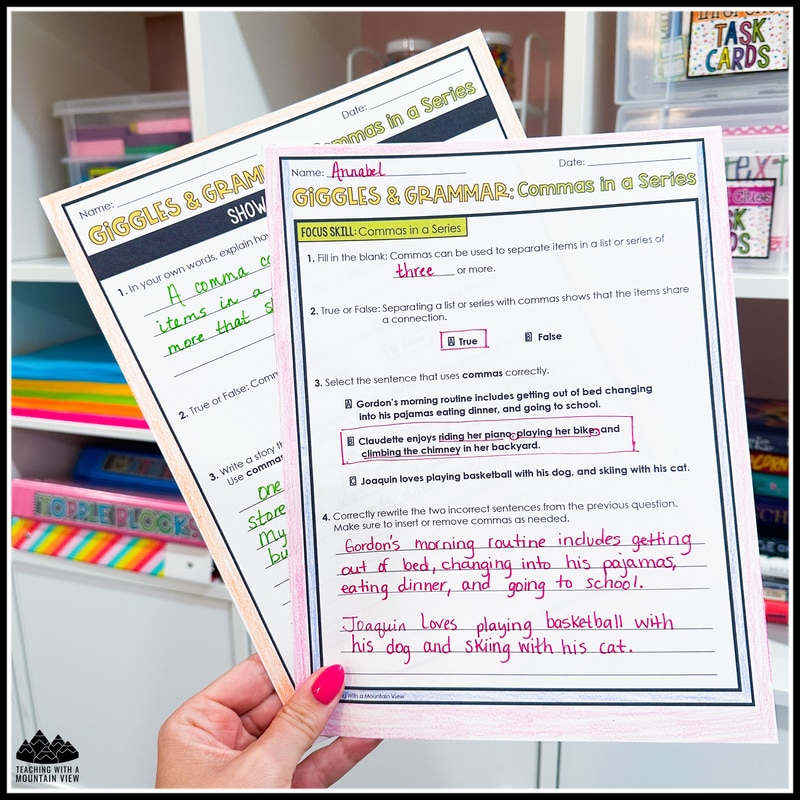 TASK
CARDS
Date:
Commas in a Series
Name:
GIGGLES & GRAMM
SHOW
1. In your own words, explain how
A comma ca
items in a
more that s
2. True or False: Comm
3. Write a story th
Use commas
one
store
My
bu
Name: Annabel Date:
GIGGLES & GRAMMAR: Commas in a Series
FOCUS SKILL: Commas in a Series
1. Fill in the blank: Commas can be used to separate items in a list or series of
three or more.
2. True or False: Separating a list or series with commas shows that the items share
a connection.
A True B False
3. Select the sentence that uses commas correctly.
A Gordon's morning routine includes getting out of bed changing
into his pajamas eating dinner, and going to school.
B Claudette enjoys riding her piano, playing her bike, and
climbing the chimney in her backyard.
C Joaquin loves playing basketball with his dog, and skiing with his cat.
4. Correctly rewrite the two incorrect sentences from the previous question.
Make sure to insert or remove commas as needed.
Gordon's morning routine includes getting
out of bed, changing into his pajamas,
eating dinner, and going to school.
Joaquin Loves playing basketball with
his dog and skiing with his cat.
ng With a Mountain View
TOPPLE BLOCKS
TEACHING WITH A
MOUNTAIN VIEW